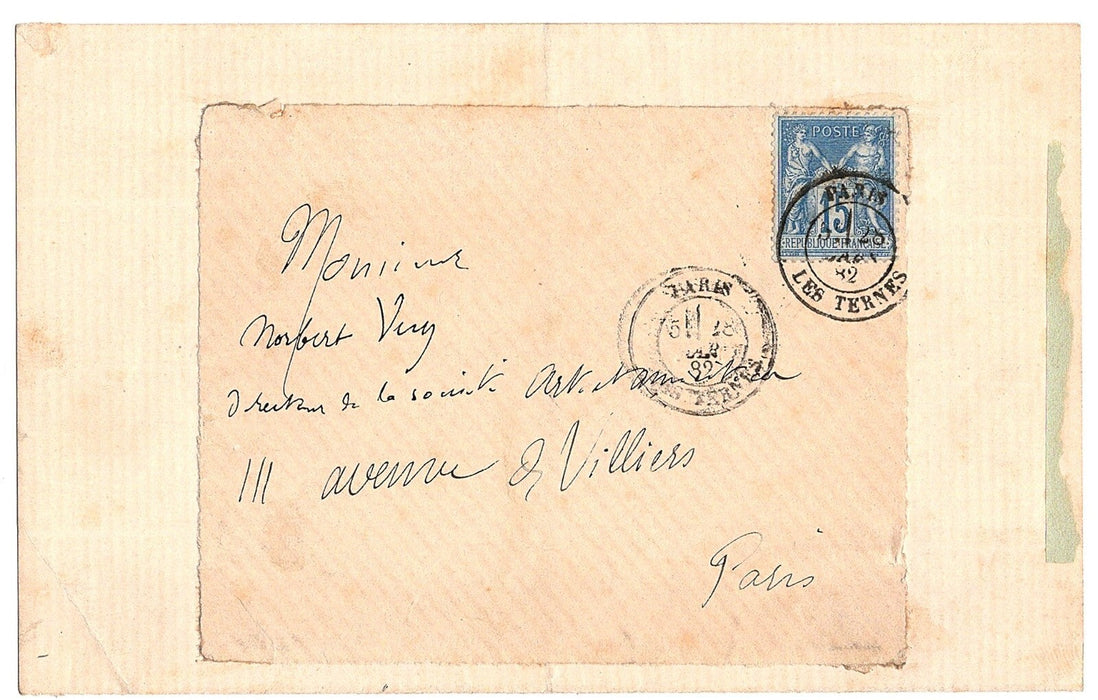 POSTE
15
REPUBLIQUE FRANÇAISE
PARIS
28
82
LES TERNES
PARIS
5 28
82
LES TERNES
Monsieur
Norbert Very
Directeur de la société Art et
111 avenue de Villiers
Paris